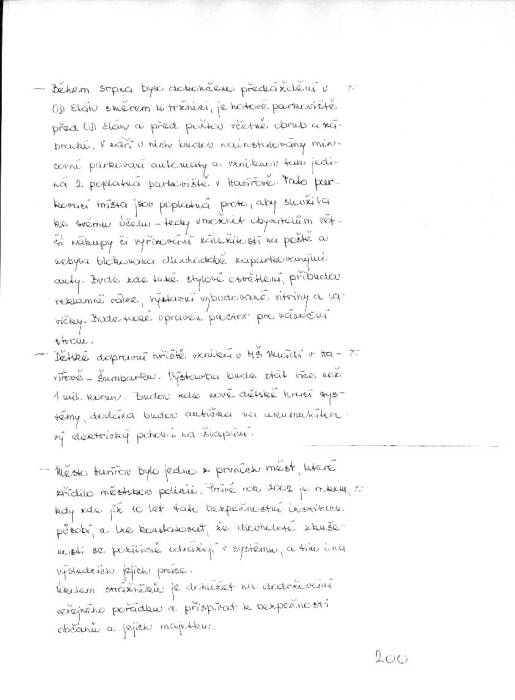 — Během srpna bylo dokončeno předláždění u
OD Elán směrem k tržnici, je hotové parkoviště
před OD Elán a před poštou včetně obrub a zá-
brublí. V září u nich budou nainstalovány min-
covní parkovací automaty a vzniknou tak jedi-
ná 2 poplatná parkoviště v Havířově. Tato par-
kovací místa jsou poplatná proto, aby sloužila
ke svému účelu - tedy umožnit obyvatelům vět-
ší nákupy či vyřizování záležitostí na poště a
nebyla blokována dlouhodobě zaparkovanými
auty. Bude zde také stylové osvětlení, přibudou
reklamní válce, výstavní vybudované vitríny a la-
vičky. Bude také upraven prostor pro vánoční
strom.
— Dětské dopravní hřiště vzniká u MŠ Mládí v Ha-
vířově - Šumbarku. Výstavba bude stát více než
1 mil. korun. Budou zde nové dětské hrací sys-
témy, dodána budou autíčka na akumuláto-
rový elektrický pohon i na šlapání.
— Město Havířov bylo jedno z prvních měst, které
zřídilo městskou policii. Právě rok 2002 je rokem,
kdy zde již 10 let tato bezpečnostní instituce
působí, a lze konstatovat, že dlouholeté zkuše-
nosti se pozitivně odrážejí v systému, a tím i na
výsledcích jejich práce.
Úkolem strážníků je dohlížet na dodržování
veřejného pořádku a přispívat k bezpečnosti
občanů a jejich majetku.
200